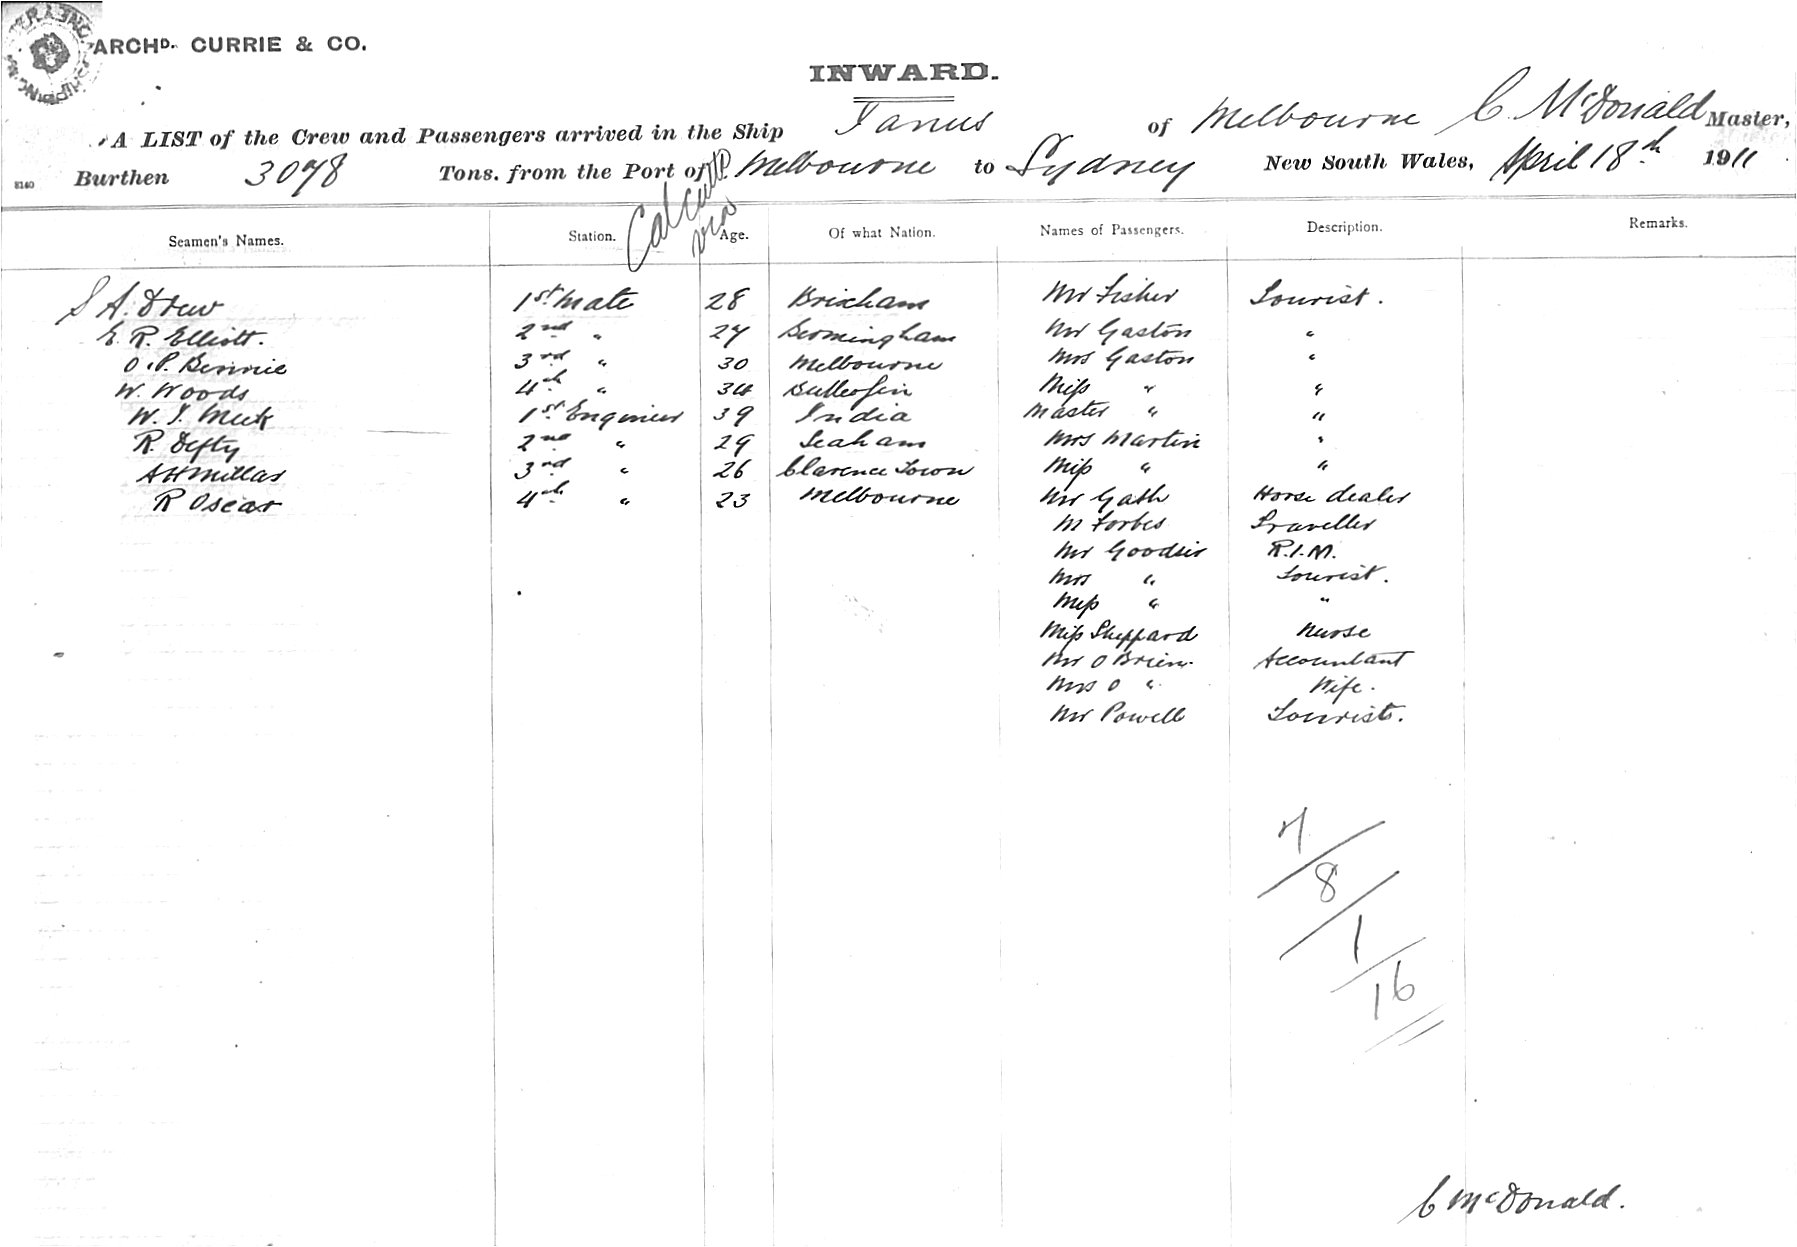 ARCHD. CURRIE & CO.
INWARD.
A LIST of the Crew and Passengers arrived in the Ship Janus of Melbourne C. McDonald Master,
8140 Burthen 3078 Tons. from the Port of Calcutta via Melbourne to Sydney New South Wales, April 18th 1911
Seamen's Names. Station. Age. Of what Nation. Names of Passengers. Description. Remarks.
S A. Drew 1st Mate 28 Brixham Mr Fisher Tourist.
E R. Elliott. 2nd " 27 Bermingham Mr Gaston "
O. P. Bennie 3rd " 30 Melbourne Mrs Gaston "
W. Woods 4th " 34 Miss " "
W. J. Meek 1st Engineer 39 India Master " "
R. Defty 2nd " 29 Seaham Mrs Martin "
A H Millas 3rd " 26 Clarence Town Miss " "
R Oscar 4th " 23 Melbourne Mr Gath Horse dealer
M Forbes Traveller
Mr Goodsir R.I.M.
Mrs " Tourist.
Miss " "
Miss Sheppard Nurse
Mr O Brien. Accountant
Mrs O " Wife.
Mr Powell Tourist.
7
8
1
16
C McDonald.